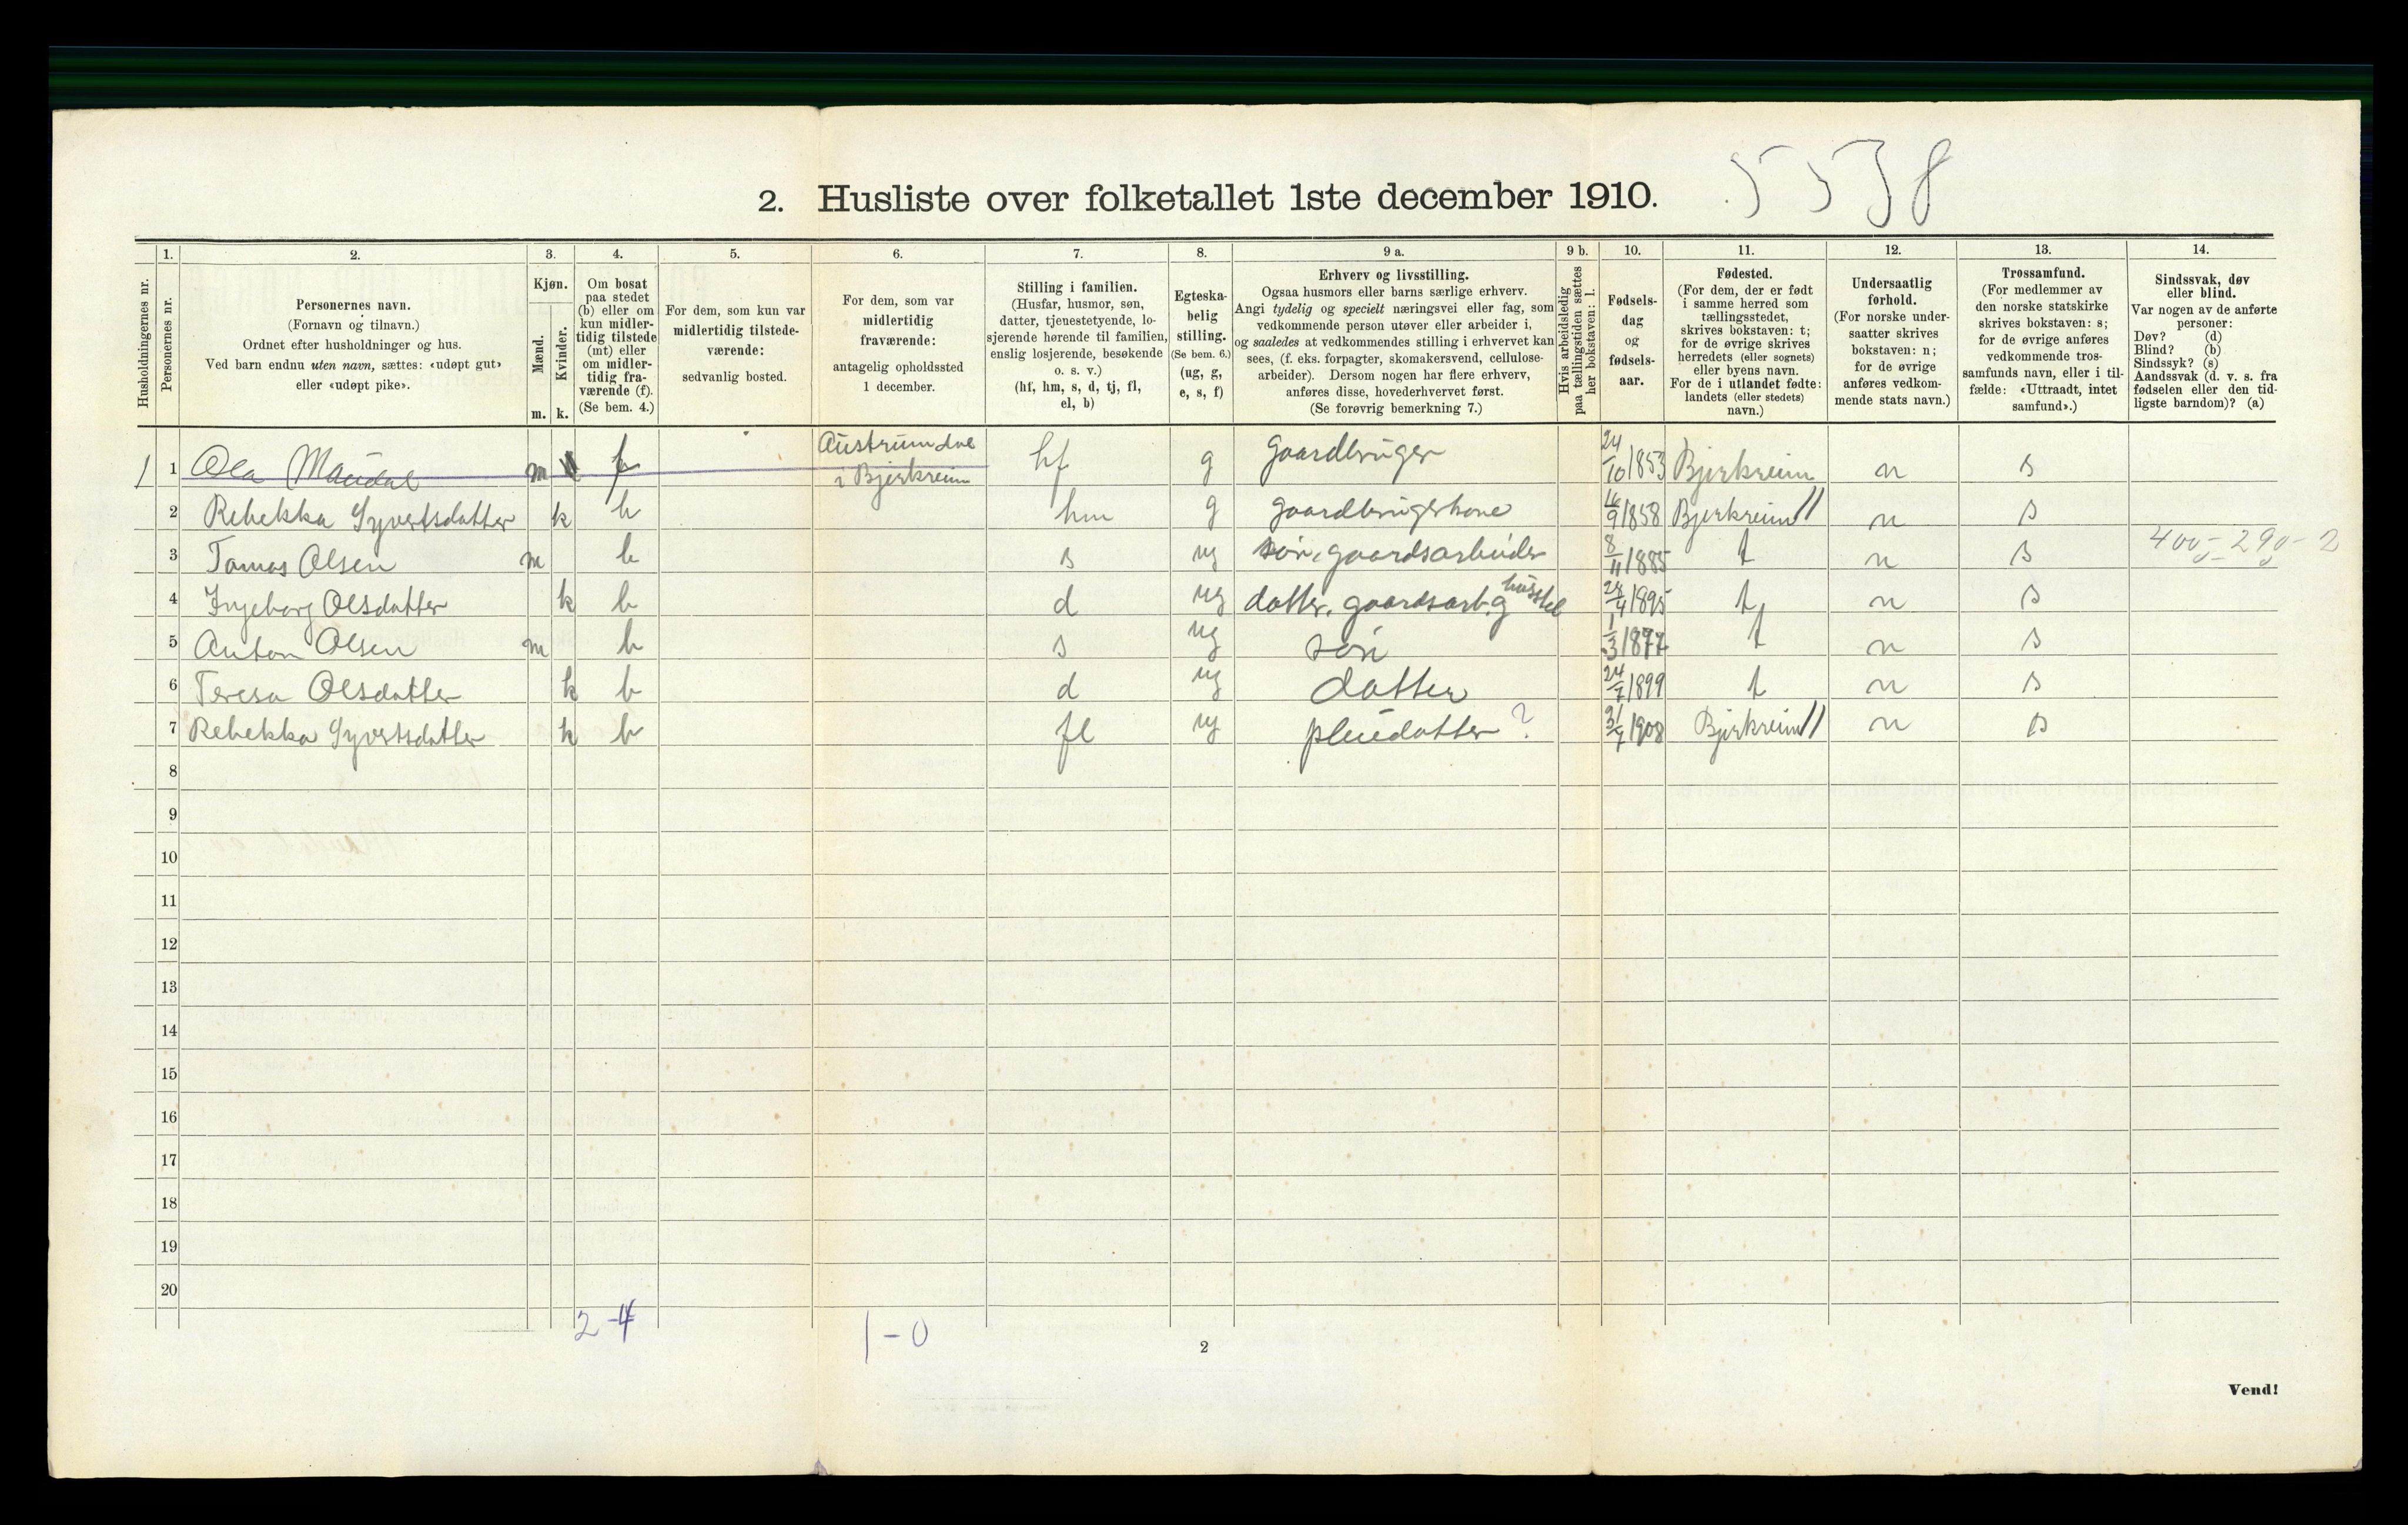 5538
2. Husliste over folketallet 1ste december 1910.
Husholdningernes nr.
1. Personernes nr.
2. Personernes navn. (Fornavn og tilnavn.) Ordnet efter husholdninger og hus. Ved barn endnu uten navn, sættes: «udøpt gut» eller «udøpt pike».
3. Kjøn. Mænd. m. Kvinder. k.
4. Om bosat paa stedet (b) eller om kun midlertidig tilstede (mt) eller om midlertidig fraværende (f). (Se bem. 4.)
5. For dem, som kun var midlertidig tilstedeværende: sedvanlig bosted.
6. For dem, som var midlertidig fraværende: antagelig opholdssted 1 december.
7. Stilling i familien. (Husfar, husmor, søn, datter, tjenestetyende, losjerende hørende til familien, enslig losjerende, besøkende o. s. v.) (hf, hm, s, d, tj, fl, el, b)
8. Egteskabelig stilling. (Se bem. 6.) (ug, g, e, s, f)
9 a. Erhverv og livsstilling. Ogsaa husmors eller barns særlige erhverv. Angi tydelig og specielt næringsvei eller fag, som vedkommende person utøver eller arbeider i, og saaledes at vedkommendes stilling i erhvervet kan sees, (f. eks. forpagter, skomakersvend, cellulosearbeider). Dersom nogen har flere erhverv, anføres disse, hovederhvervet først. (Se forøvrig bemerkning 7.)
9 b. Hvis arbeidsledig paa tællingstiden sættes her bokstaven: l.
10. Fødselsdag og fødselsaar.
11. Fødested. (For dem, der er født i samme herred som tællingsstedet, skrives bokstaven: t; for de øvrige skrives herredets (eller sognets) eller byens navn. For de i utlandet fødte: landets (eller stedets) navn.)
12. Undersaatlig forhold. (For norske undersaatter skrives bokstaven: n; for de øvrige anføres vedkommende stats navn.)
13. Trossamfund. (For medlemmer av den norske statskirke skrives bokstaven: s; for de øvrige anføres vedkommende trossamfunds navn, eller i tilfælde: «Uttraadt, intet samfund».)
14. Sindssvak, døv eller blind. Var nogen av de anførte personer: Døv? (d) Blind? (b) Sindssyk? (s) Aandssvak (d. v. s. fra fødselen eller den tidligste barndom)? (a)
1 1 Ola Maudal m f Austrumdal i Bjerkreim hf g gaardbruger 24/10 1853 Bjerkreim n s
2 Rebekka Syvertsdatter k b hm g gaardbrugerkone 16/9 1858 Bjerkreim // n s
3 Tomas Olsen m b s ug søn, gaardsarbeider 8/11 1885 t n s 400-290-2
4 Ingeborg Olsdatter k b d ug datter, gaardsarb. g husstel 28/4 1895 t n s
5 Anton Olsen m b s ug søn 1/3 1897 t n s
6 Teresa Olsdatter k b d ug datter 24/7 1899 t n s
7 Rebekka Syvertsdatter k b fl ug pleiedatter ? 31/7 1908 Bjerkreim // n s
8
9
10
11
12
13
14
15
16
17
18
19
20
2-4 1-0
2
Vend!